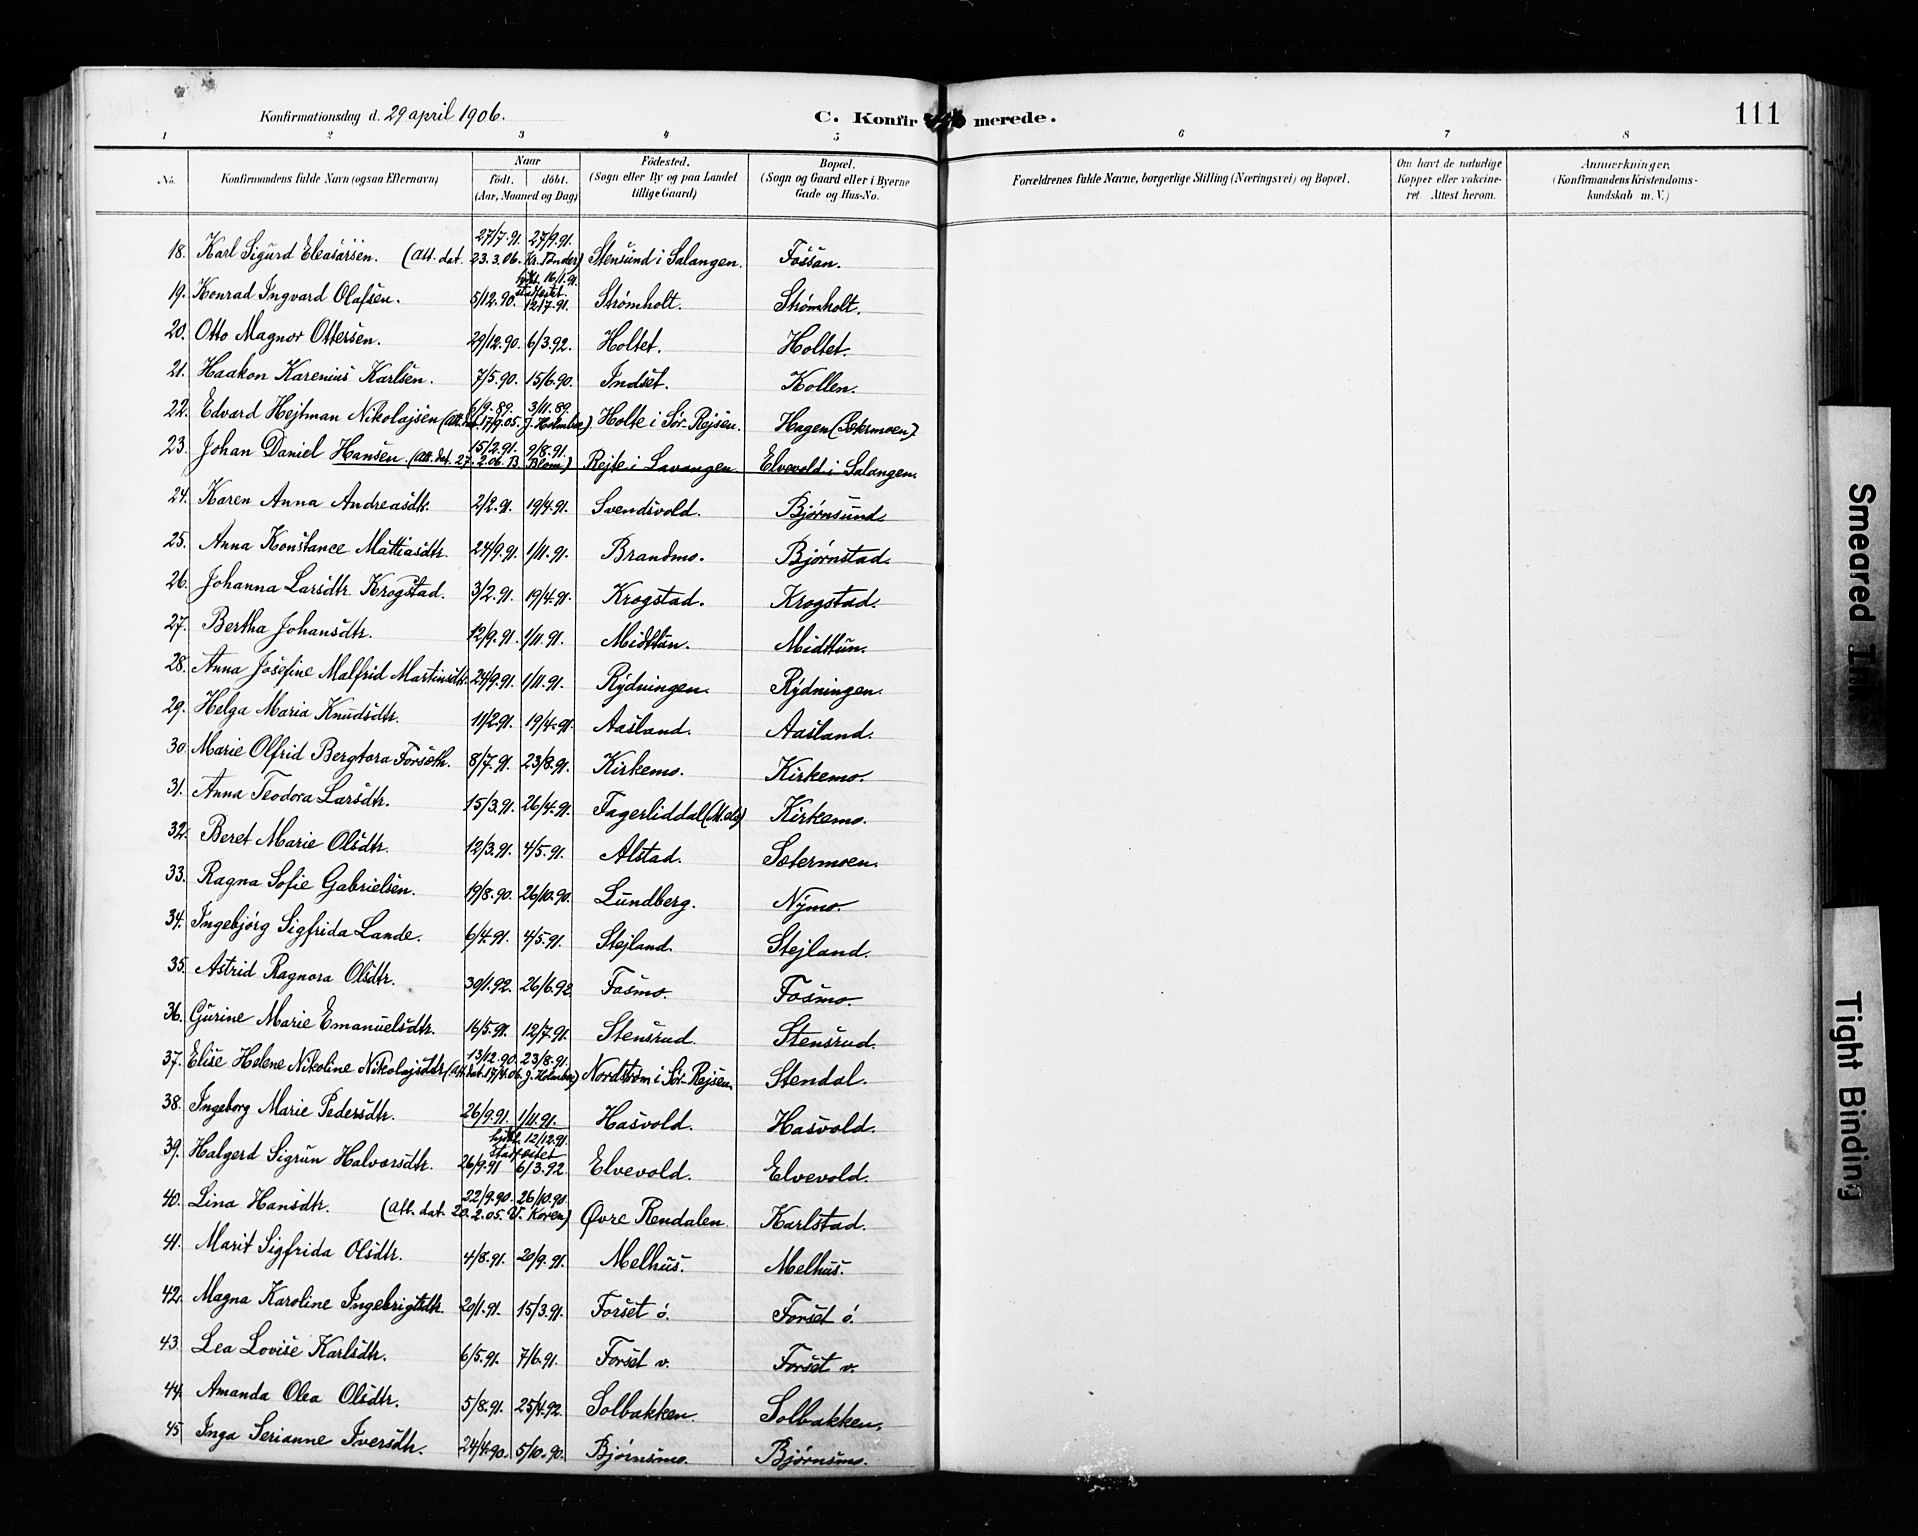 Konfirmationsdag d. 29 april 1906. C. Konfirmerede. 111
1 2 3 4 5 6 7 8
No. Konfirmandens fulde Navn (ogsaa Efternavn) Naar födt. döbt. (Aar, Maaned og Dag) Födested. (Sogn eller By og paa Landet tillige Gaard) Bopæl. (Sogn og Gaard eller i Byerne Gade og Hus-No. Forældrenes fulde Navne, borgerlige Stilling (Næringsvei) og Bopæl. Om havt de naturlige Kopper eller vakcineret. Attest herom. Anmærkninger. (Konfirmandens Kristendomskundskab m. V.)
18. Karl Sigurd Eleasarsen. (Att. dat. 23.3.06. Kr. Tander) 27/7.91. 27/9.91. Stensund i Salangen. Fossan.
19. Konrad Ingvard Olafsen. 5/12.90. hjdbt. 16/1.91. stadfestet 12/7.91. Strømholt. Strømholt.
20. Otto Magnor Ottersen. 29/12.90. 6/3.92. Holtet. Holtet.
21. Haakon Karenius Karlsen. 7/5.90. 15/6.90. Indset. Kollen.
22. Edvard Hejtman Nikolajsen (Att. dat. 17/9.05. J. Holmboe) 6/9.89. 3/11.89. Holte i Sør-Rejsen. Hagen (Sætermoen).
23. Johan Daniel Hansen. (Att. dat. 27.2.06. B Blom) 15/2.91. 9/8.91. Rejte i Lavangen Elvevold i Salangen.
24. Karen Anna Andreasdtr. 2/2.91. 19/4.91. Svendsvold. Bjørnsund.
25. Anna Konstance Mattiasdtr. 24/9.91. 1/11.91. Brandmo. Bjørnstad.
26. Johanna Larsdtr. Krogstad. 3/2.91. 19/4.91. Krogstad. Krogstad.
27. Bertha Johansdtr. 12/9.91. 1/11.91. Midttun. Midttun.
28. Anna Josefine Malfrid Martinsdtr. 24/9.91. 1/11.91. Rydningen. Rydningen.
29. Helga Maria Knudsdtr. 11/2.91. 19/4.91. Aasland. Aasland.
30. Marie Olfrid Bergtora Forseth. 8/7.91. 23/8.91. Kirkemo. Kirkemo.
31. Anna Teodora Larsdtr. 15/3.91. 26/4.91. Fagerliddal (M.elv) Kirkemo.
32. Beret Marie Olsdtr. 12/3.91. 4/5.91. Alstad. Sætermoen.
33. Ragna Sofie Gabrielsen. 19/8.90. 26/10.90. Lundberg. Nymo.
34. Ingebjørg Sigfrida Lande. 6/4.91. 4/5.91. Stejland. Stejland.
35. Astrid Ragnora Olsdtr. 30/1.92. 26/6.92. Fosmo. Fosmo.
36. Gurine Marie Emanuelsdtr. 16/5.91. 12/7.91. Stensrud. Stensrud.
37. Elise Helene Nikoline Nikolajsdtr (Att. dat. 17/4.06. J. Holmboe) 13/12.90. 23/8.91. Nordstrøm i Sør-Rejsen. Stendal.
38. Ingeborg Marie Pedersdtr. 26/9.91. 1/11.91. Hasvold. Hasvold.
39. Halgerd Sigrun Halvorsdtr. 26/9.91 hjdbt. 12/12.91. stadfæstet 6/3.92. Elvevold. Elvevold.
40. Lina Hansdtr. (Att. dat. 20.2.05. U. Koren) 22/9.90. 26/10.90. Øvre Rendalen. Karlstad.
41. Marit Sigfrida Olsdtr. 4/8.91. 20/9.91. Melhus. Melhus.
42. Magna Karoline Ingebrigtsdtr. 20/1.91. 15/3.91. Forset ø. Forset ø.
43. Lea Lovise Karlsdtr. 6/5.91. 7/6.91. Forset v. Forset v.
44. Amanda Olea Olsdtr. 5/8.91. 25/4.92. Solbakken. Solbakken.
45 Inga Serianne Iversdtr. 24/4.90. 5/10.90. Bjørnsmo. Bjørnsmo.
Smeared Ink
Tight Binding